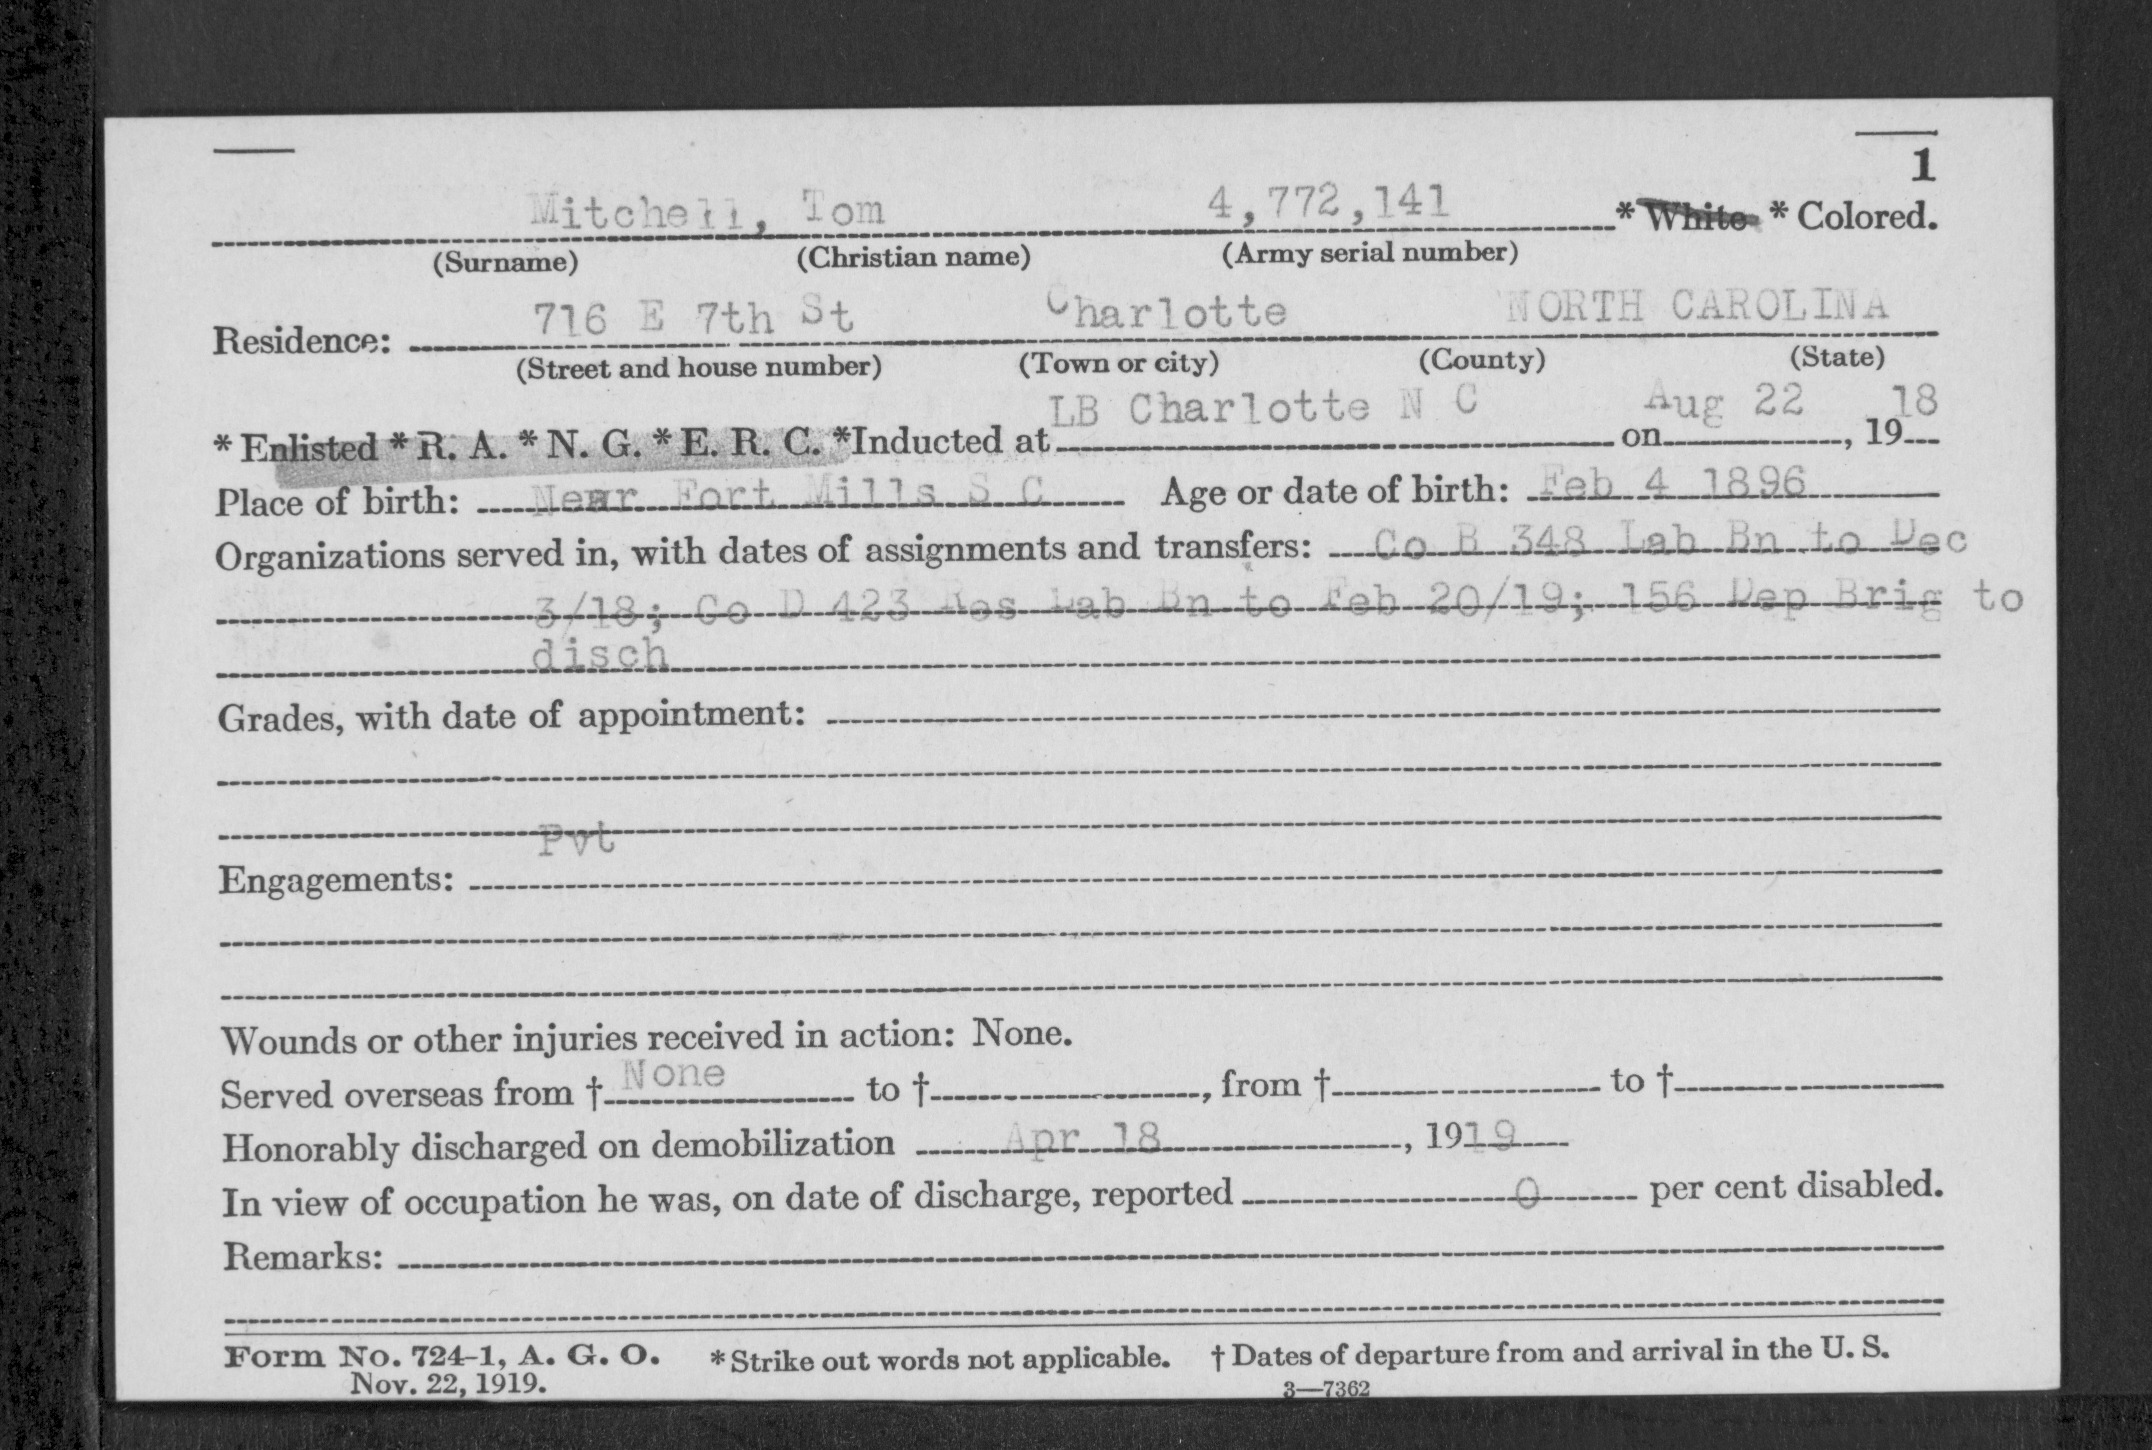 1
Mitchell, Tom 4,772,141 * White * Colored.
(Surname) (Christian name) (Army serial number)
Residence: 716 E 7th St Charlotte NORTH CAROLINA
(Street and house number) (Town or city) (County) (State)
* Enlisted * R. A. * N. G. * E. R. C. *Inducted at LB Charlotte N C on Aug 22, 1918
Place of birth: Near Fort Mills S C Age or date of birth: Feb 4 1896
Organizations served in, with dates of assignments and transfers: Co B 348 Lab Bn to Dec
3/18; Co D 423 Res Lab Bn to Feb 20/19; 156 Dep Brig to
disch
Grades, with date of appointment:
Pvt
Engagements:
Wounds or other injuries received in action: None.
Served overseas from † None to †, from † to †
Honorably discharged on demobilization Apr 18, 1919
In view of occupation he was, on date of discharge, reported 0 per cent disabled.
Remarks:
Form No. 724-1, A. G. O. * Strike out words not applicable. † Dates of departure from and arrival in the U. S.
Nov. 22, 1919. 3—7362